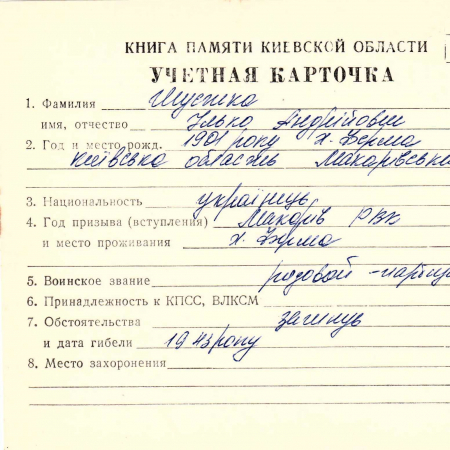 КНИГА ПАМЯТИ КИЕВСКОЙ ОБЛАСТИ
УЧЕТНАЯ КАРТОЧКА
1. Фамилия Шустка
имя, отчество Улько Андрійович
2. Год и место рожд. 1901 року х. Ферма
Київська область Макарівськи
3. Национальность українець
4. Год призыва (вступления) Макарів РВК
и место проживания х. Ферма
5. Воинское звание рядовой -
6. Принадлежность к КПСС, ВЛКСМ
7. Обстоятельства загинув
и дата гибели 1943 року
8. Место захоронения